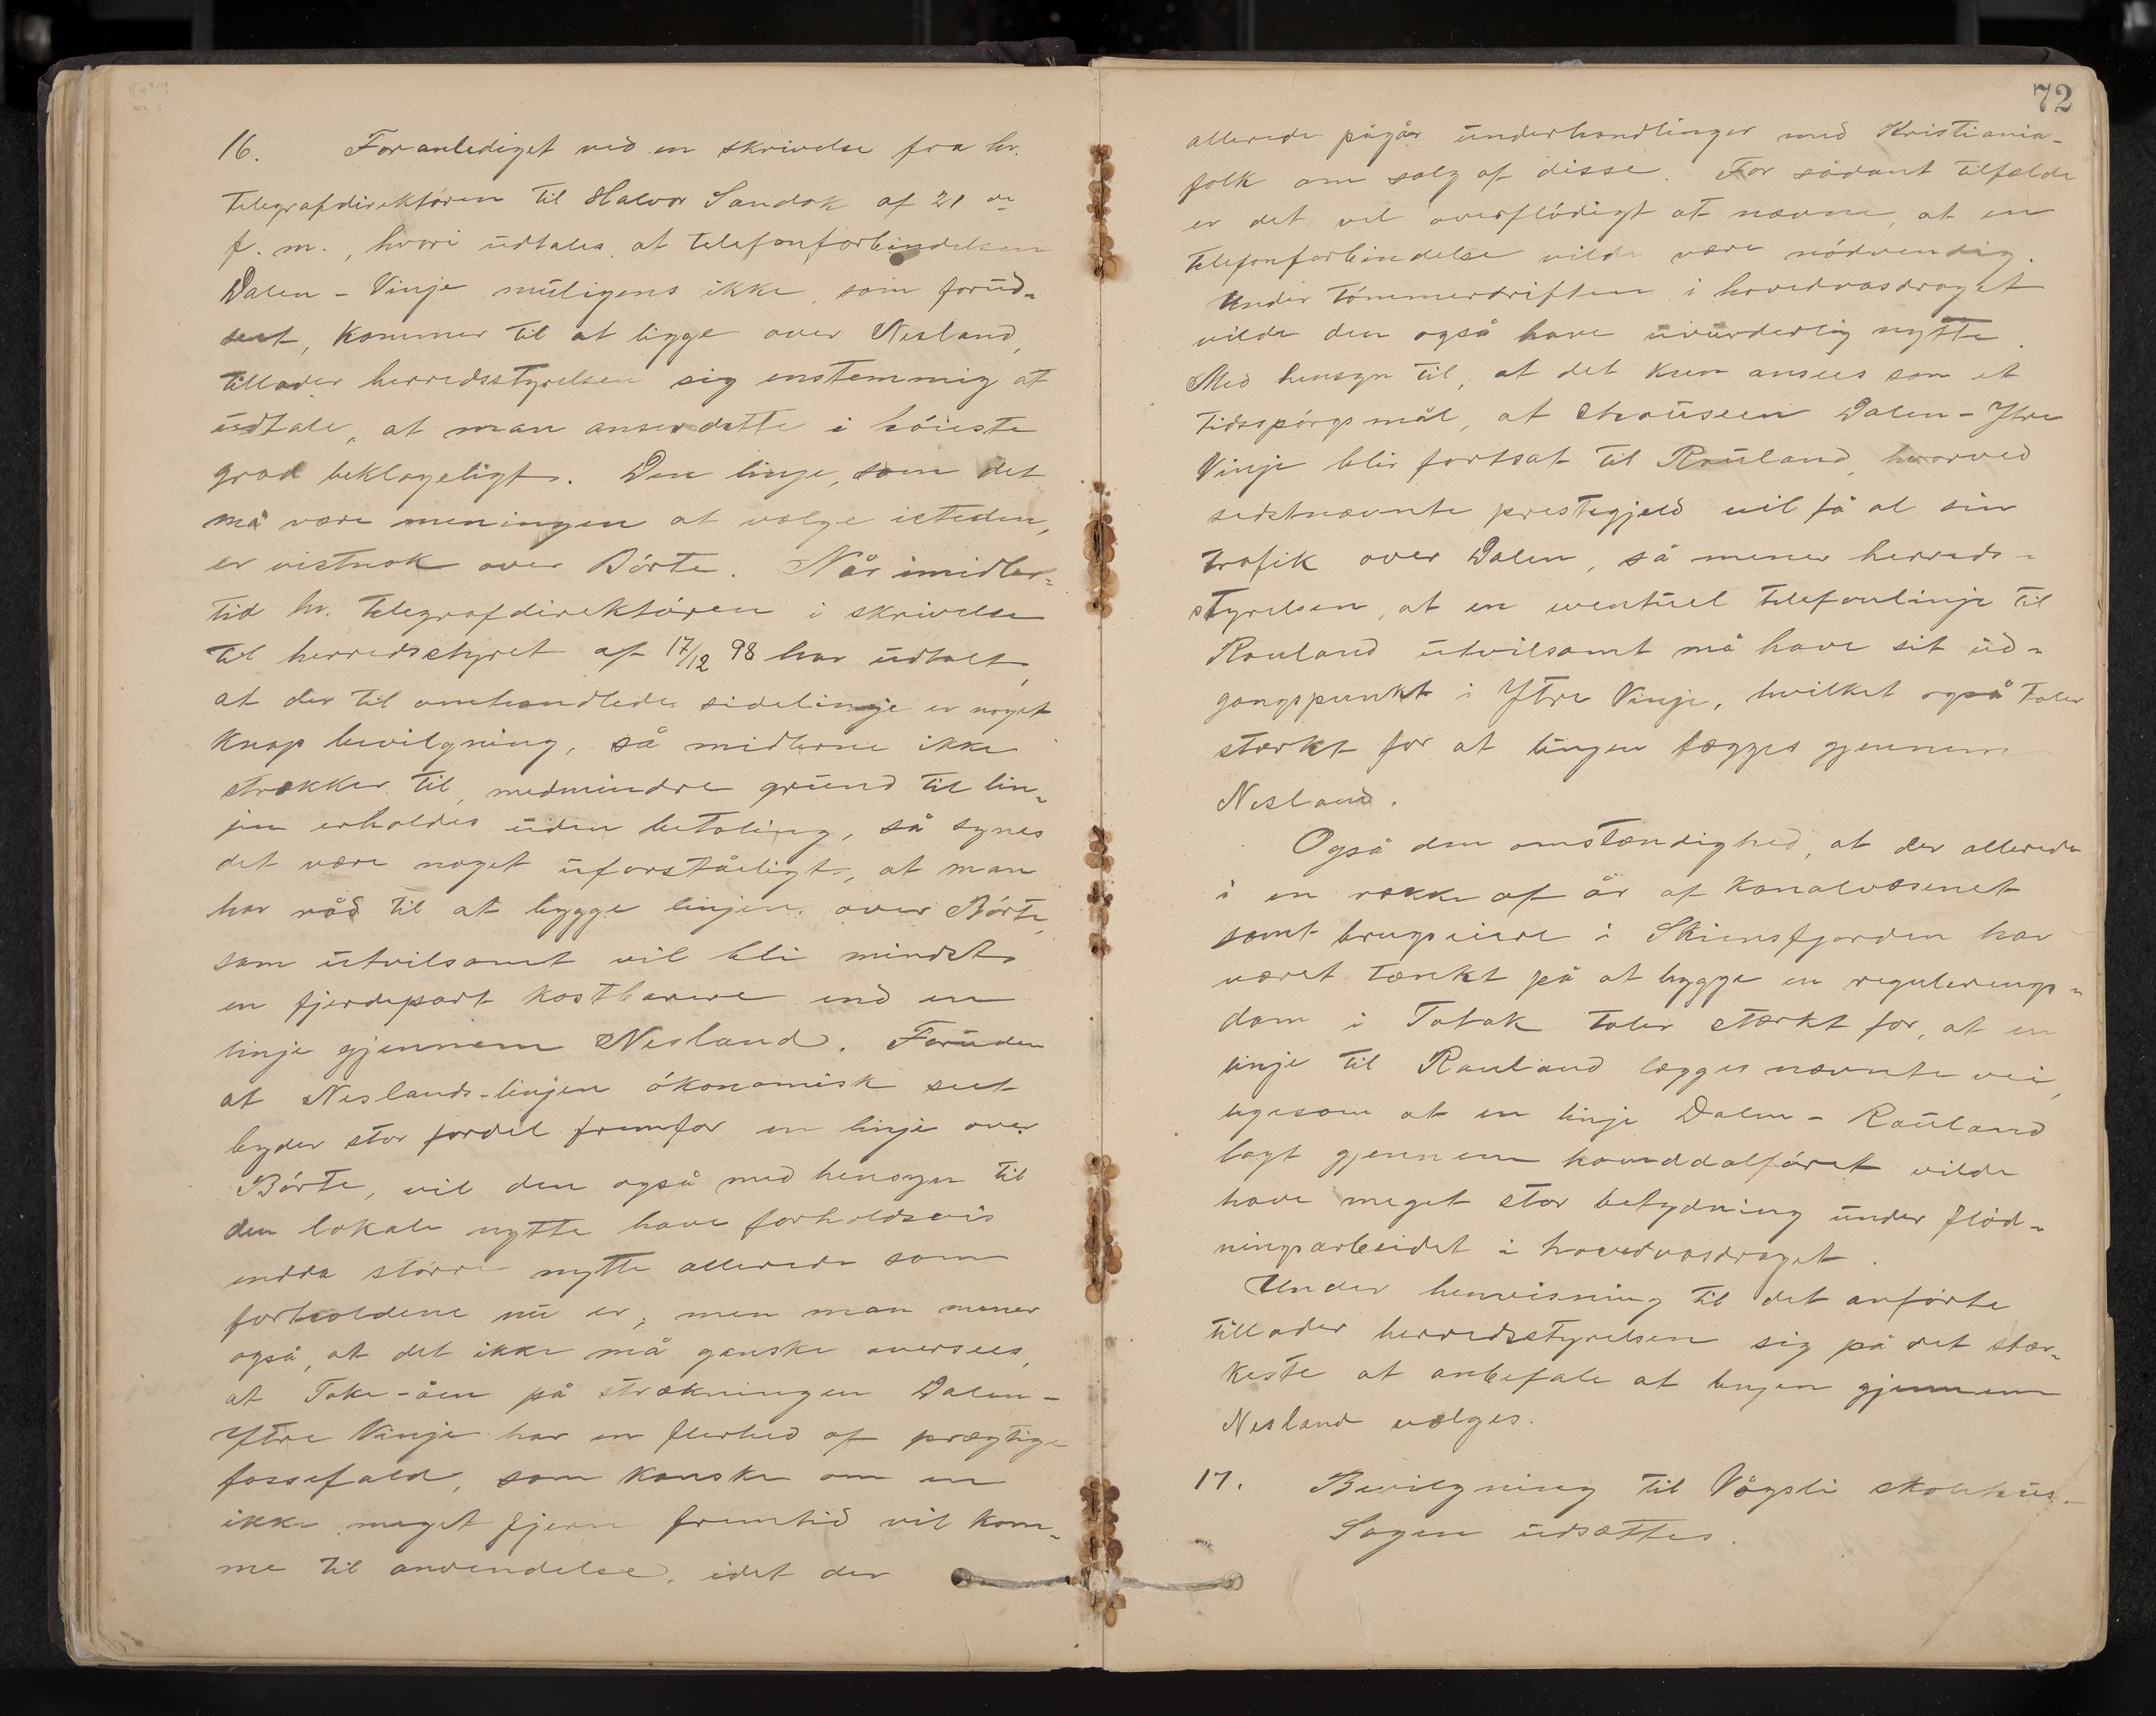 16. Foranlediget ved en skrivelse fra hr.
telegrafdirektøren til Halvor Sandok af 21 de
f. m., hvori udtales, at telefonforbindelsen
Dalen - Vinje muligens ikke, som forud-
seet, kommer til at ligge over Nesland,
tillader herredsstyrelsen sig enstemmig at
udtale, at man anser dette i høieste
grad beklageligt. Den linje, som det
må være meningen at vælge isteden,
er vistnok over Børte. Når imidler-
tid hr. telegrafdirektøren i skrivelse
til herredsstyret af 17/12 98 har udtalt,
at der til omhandlede sidelinje er noget
knap bevilgning, så midlerne ikke
strækker til, medmindre grund til lin-
jen erholdes uden betaling, så synes
det være noget uforståeligt, at man
har råd til at bygge linjen over Børte,
som utvilsomt vil bli mindst
en fjerdepart kostbarere end en
linje gjennem Nesland. Foruden
at Neslands-linjen økonomisk seet
byder stor fordel fremfor en linje over
Børte, vil den også med hensyn til
den lokale nytte have forholdsvis
endda større nytte allerede som
forholdene nu er; men man mener
også, at det ikke må ganske oversees,
at Toke-åen på strækningen Dalen -
Ytre Vinje har en flerhed af prægtige
fossefald, som kanske om en
ikke meget fjern fremtid vil kom-
me til anvendelse, idet der
72
allerede pågår underhandlinger med Kristiania-
folk om salg af disse. For sådant tilfælde
er det vel overflødigt at nævne, at en
telefonforbindelse vilde være nødvendig.
Under tømmerdriften i hovedvasdraget
vilde den også have uvurderlig nytte.
Med hensyn til, at det kun ansees som et
tidsspørgsmål, at chauseen Dalen - Ytre
Vinje blir fortsat til Rauland, hvorved
sidstnævnte prestegjeld vil få al sin
trafik over Dalen, så mener herreds-
styrelsen, at en eventuel telefonlinje til
Rauland utvilsomt må have sit ud-
gangspunkt i Ytre Vinje, hvilket også taler
stærkt for at linjen lægges gjennem
Nesland.
Også den omstændighed, at der allerede
i en række af år af kanalvæsenet
samt brugseiere i Skiensfjorden har
været tænkt på at bygge en regulerings-
dam i Totak taler stærkt for, at en
linje til Rauland lægges nævnte vei,
ligesom at en linje Dalen - Rauland
lagt gjennem hoveddalføret vilde
have meget stor betydning under flød-
ningsarbeidet i hovedvasdraget.
Under henvisning til det anførte
tillader herredsstyrelsen sig på det stær-
keste at anbefale at linjen gjennem
Nesland vælges.
17. Bevilgning til Vågsli skolehus.
Sagen udsættes.